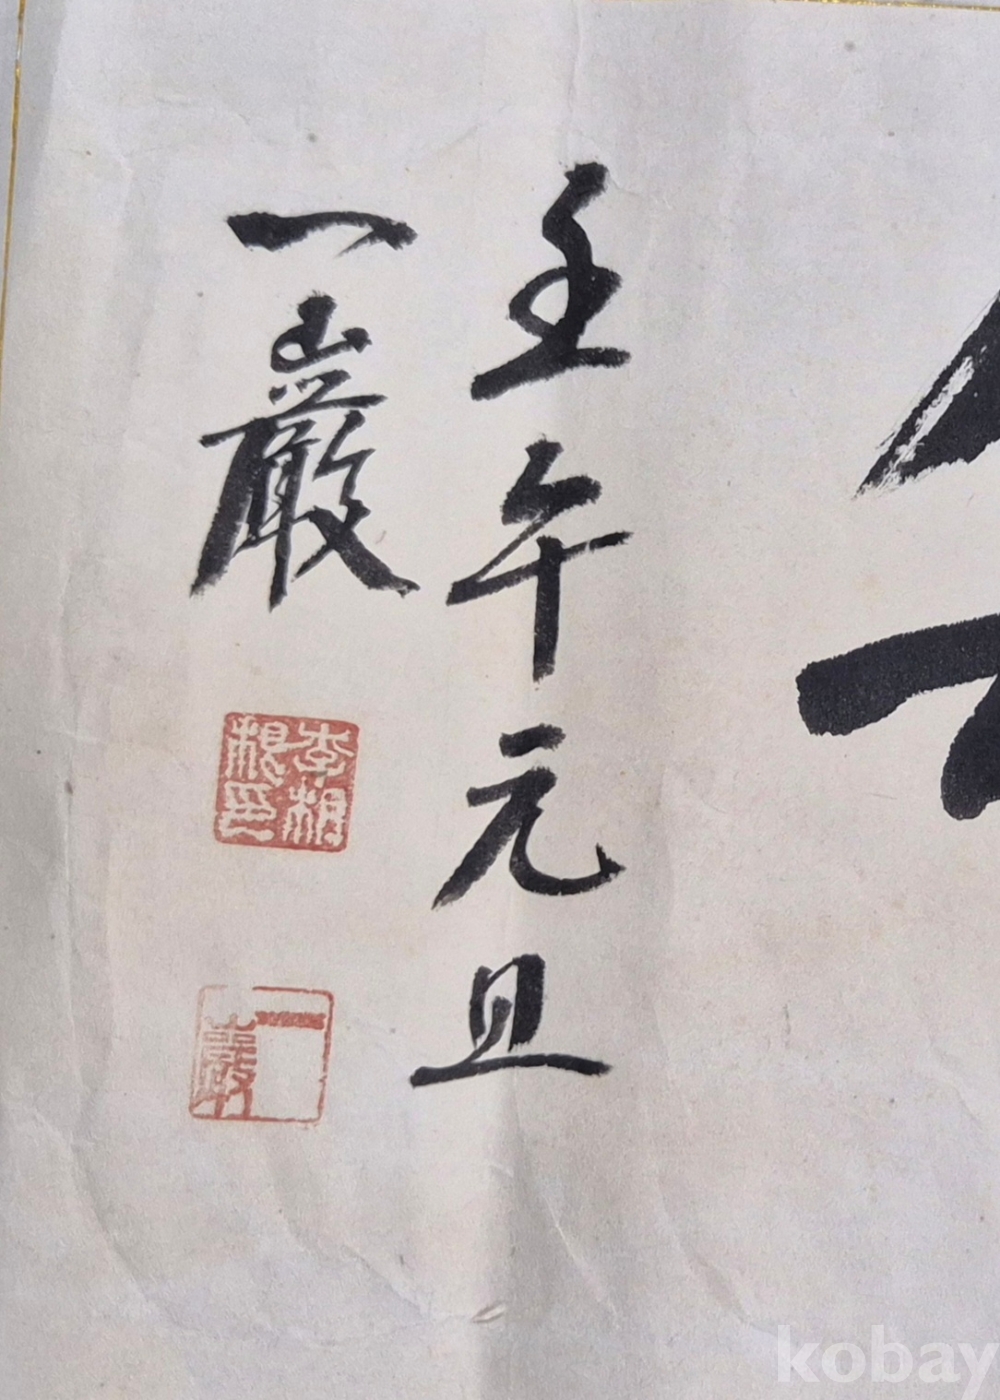 壬午元旦
一巖
李相根印
一巖
kobay